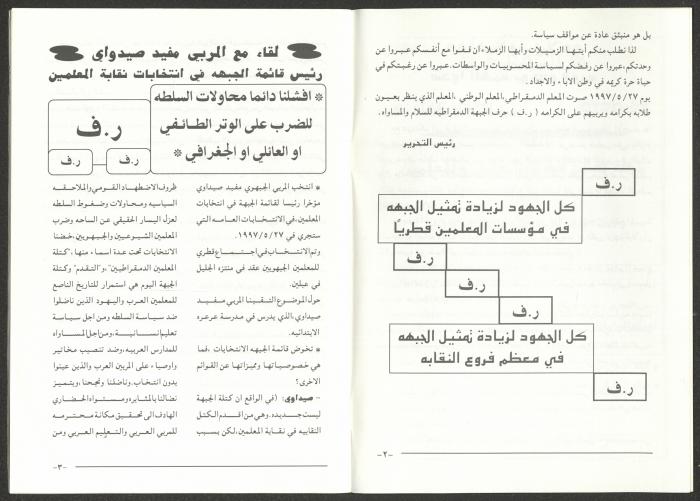 بل هو منبثق عادة عن مواقف سياسة.
لذا نطلب منكم أيتها الزميلات وأيها الزملاء ان قفوا مع أنفسكم عبروا عن
وحدتكم، عبروا عن رفضكم لسياسة المحسوبيات والواسطات. عبروا عن رغبتكم في
حياة حرة كريمه في وطن الاباء والاجداد.
يوم ١٩٩٧/٥/٢٧ صوت المعلم الدمقراطي، المعلم الوطني ، المعلم الذي ينظر بعيون
طلابه بكرامه ويربيهم على الكرامه ( ر.ف ) حرف الجبهة الدمقراطيه للسلام والمساواه.
رئيس التحرير
ر.ف
كل الجهود لزيادة تمثيل الجبهه
في مؤسسات المعلمين قطريًا
ر.ف
ر.ف
ر.ف
كل الجهود لزيادة تمثيل الجبهه
في معظم فروع النقابه
ر.ف
-٢-
لقاء مع المربي مفيد صيدواي
رئيس قائمة الجبهه في انتخابات نقابة المعلمين
* افشلنا دائما محاولات السلطه
للضرب على الوتر الطائفي
او العائلي او الجغرافي *
ر.ف
ر.ف
ر.ف
* انتخب المربي الجبهوي مفيد صيداوي
مؤخرا رئيسا لقائمة الجبهة في انتخابات
المعلمين، في الانتخابات العامه التي
ستجري في ١٩٩٧/٥/٢٧.
وتم الانتخاب في اجتماع قطري
للمعلمين الجبهويين عقد في منتزه الجليل
في عبلين.
حول الموضوع التقينا المربي مفيد
صيداوي، الذي يدرس في مدرسة عرعره
الابتدائيه.
* تخوض قائمة الجبهه الانتخابات ، فما
هي خصوصياتها وميزاتها عن القوائم
الاخرى؟
- صيداوي: (في الواقع ان كتلة الجبهة
ليست جديده. وهي من اقدم الكتل
النقابيه في نقابة المعلمين، لكن بسبب
ظروف الاضطهاد القومي والملاحقه
السياسيه ومحاولات وضغوط السلطه
لعزل اليسار الحقيقي عن الساحه وضرب
المعلمين الشيوعيين والجبهويين، خضنا
الانتخابات تحت عدة اسماء منها، "كتلة
المعلمين الدمقراطيين" و"التقدم" وكتلة
الجبهة اليوم هي استمرار للتاريخ الناصع
للمعلمين العرب واليهود الذين ناضلوا
ضد سياسة السلطه ومن اجل سياسة
تعليم انسانية، ومن اجل المساواه
للمدارس العربيه، وضد تنصيب مخاتير
واوصياء على المربين العرب والذين عينوا
بدون انتخاب. وناضلنا ونجحنا، ويتميز
نضالنا بالمثابره ومستواه الحضاري
الهادف الى تحقيق مكانة محترمه
للمربي العربي والتعليم العربي ومن
-٣-